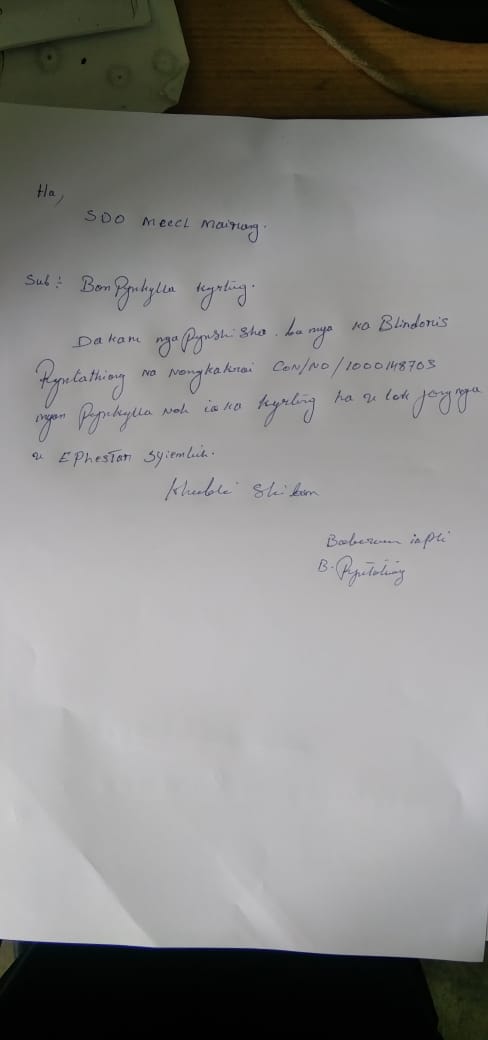 Ha,
SDO MeECL Mairang.
Sub : Ban Pynkylla kyrting.
Da kane nga Pynshisha ba nga ka Blindoris
Ryntathiang na Nongkhlaw CON/NO/1000148703
ngan Pynkylla noh ia ka kyrting ha u lok jong nga
u EPhestar Syiemlieh.
Khublei Shibun
B.